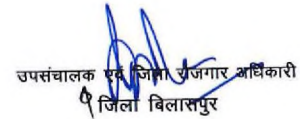 उपसंचालक एवं जिला रोजगार अधिकारी
जिला बिलासपुर